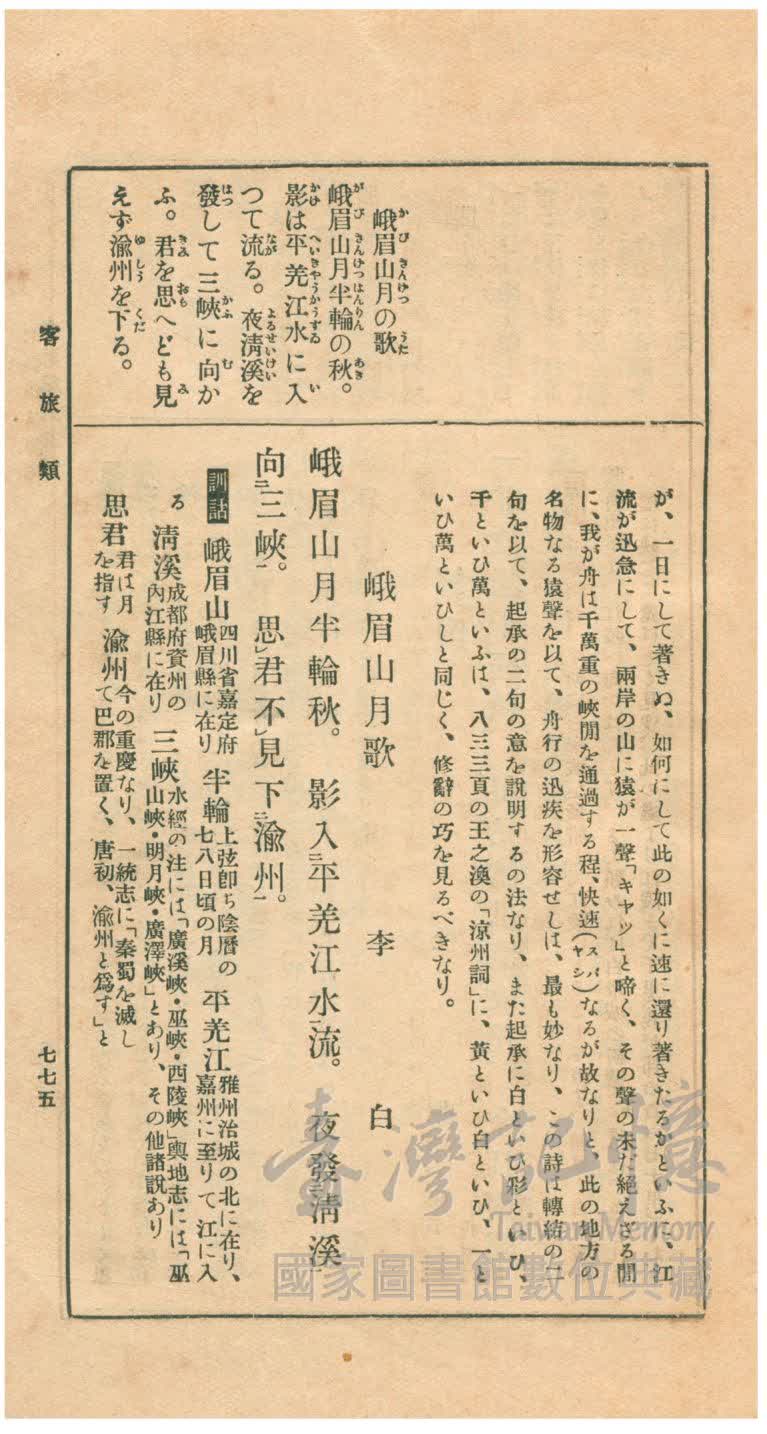 峨眉山月の歌
峨眉山月半輪の秋。
影は平羌江水に入
つて流る。夜淸溪を
發して三峽に向か
ふ。君を思へども見
えず渝州を下る。
が、一日にして著きぬ、如何にして此の如くに速に還り著きたるかといふに、江
流が迅急にして、兩岸の山に猿が一聲「キヤツ」と啼く、その聲の未だ絕えざる閒
に、我が舟は千萬重の峽閒を通過する程、快速(スバヤシ)なるが故なりと、此の地方の
名物なる猿聲を以て、舟行の迅疾を形容せしは、最も妙なり、この詩は轉結の二
句を以て、起承の二句の意を說明するの法なり、また起承に白といひ彩といひ、
千といひ萬といふは、八三三頁の王之渙の「涼州詞」に、黃といひ白といひ、一と
いひ萬といひしと同じく、修辭の巧を見るべきなり。
峨眉山月歌 李白
峨眉山月半輪秋。影入二平羌江水一流。夜發淸溪
向二三峽一。思レ君不レ見下二渝州一。
訓詁 峨眉山 四川省嘉定府峨眉縣に在り 半輪 上弦卽ち陰曆の七八日頃の月 平羌江 雅州治城の北に在り、嘉州に至りて江に入
る 淸溪 成都府資州の內江縣に在り 三峽 水經の注には「廣溪峽・巫峽・西陵峽」輿地志には「巫山峽・明月峽・廣澤峽」とあり、その他諸說あり
思君 君は月を指す 渝州 今の重慶なり、一統志に「秦蜀を滅して巴郡を置く、唐初、渝州と爲す」と
客旅類
七七五
臺灣記憶
Taiwan Memory
國家圖書館數位典藏